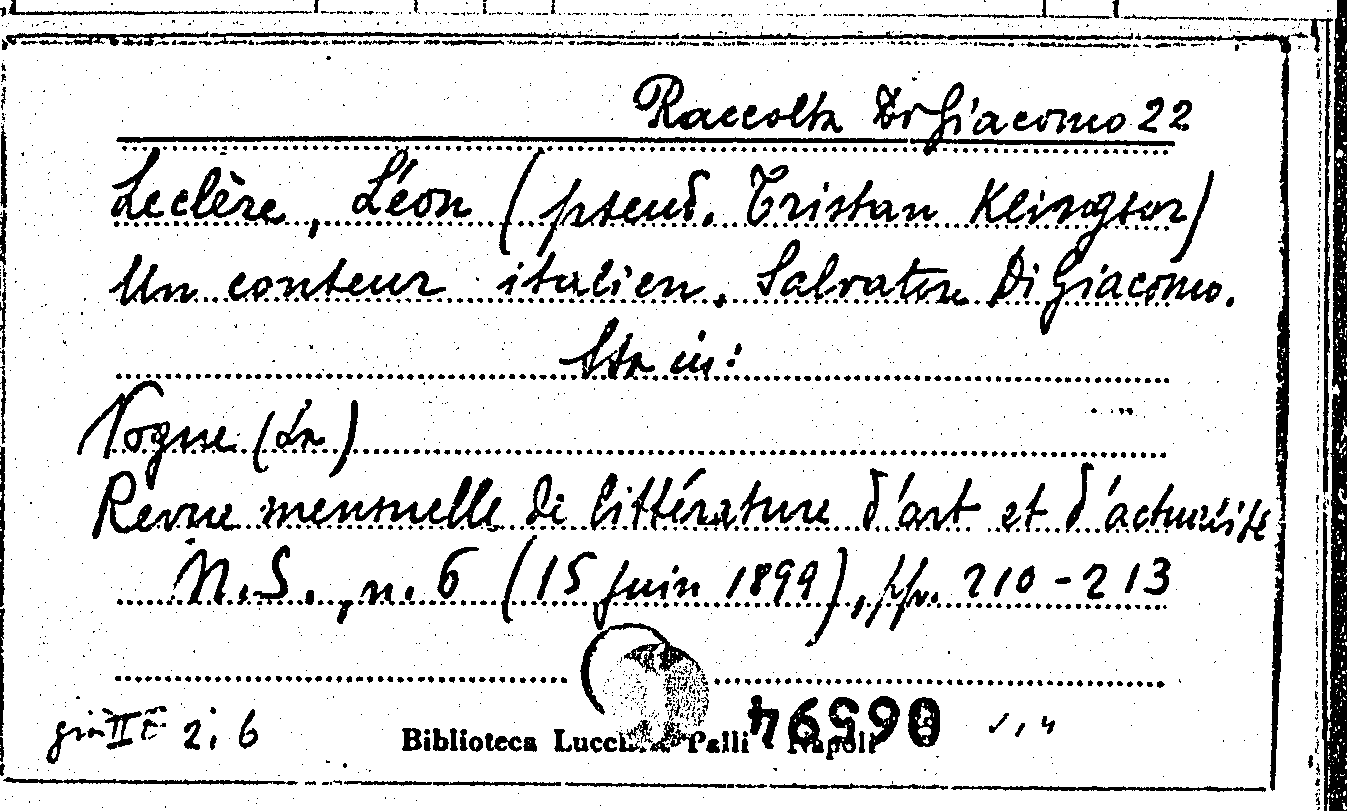 Raccolta Di Giacomo 22
Leclère, Léon (pseud. Tristan Klingsor)
Un conteur italien. Salvatore Di Giacomo.
Sta in:
Vogue (La)
Revue mensuelle de littérature d'art et d'actualité
N.S., n. 6 (15 Juin 1899), pp. 210-213
già II E 2. 6
Biblioteca Lucchesi Palli Napoli
06594